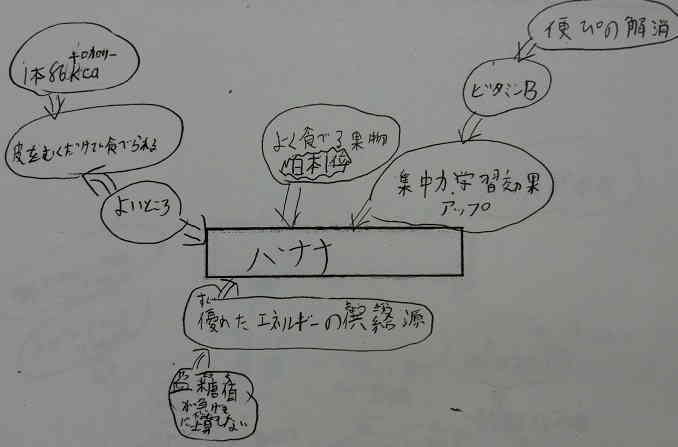 便ぴの解消
キロカロリー
1本86kcal
ビタミンB
よく食べる果物
日本1位
皮をむくだけで食べられる
集中力、学習効果
アップ
よいところ
バナナ
すぐ
優れたエネルギーの供給源
血糖値
が急げき
に上昇しない